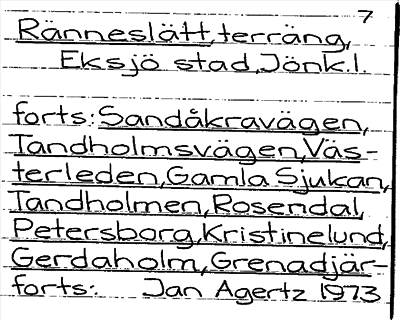 7
Ränneslätt, terräng,
Eksjö stad, Jönk.l.
forts: Sandåkravägen,
Tandholmsvägen, Väs-
terleden, Gamla Sjukan,
Tandholmen, Rosendal,
Petersborg, Kristinelund,
Gerdaholm, Grenadjär-
forts: Jan Agertz 1973